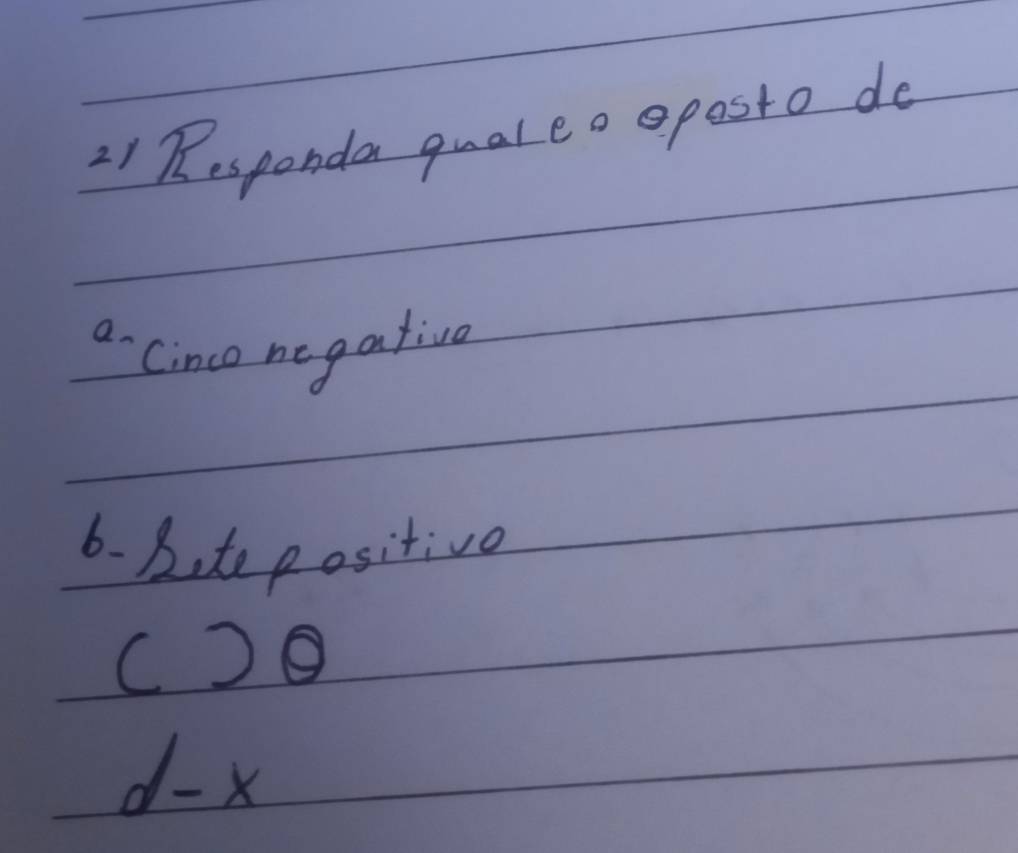 2) Responda qual e o oposto de
a- Cinco negativo
b- Sete positivo
C) 0
d- x